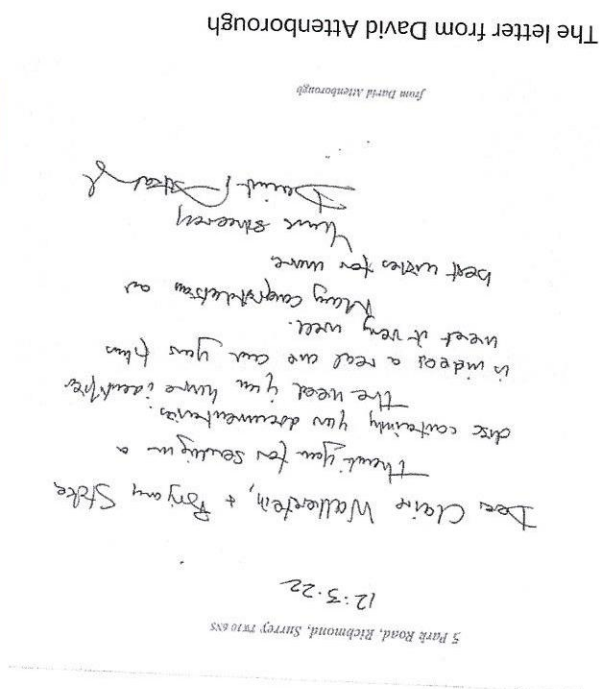 5 Park Road, Richmond, Surrey TW10 6NS
12.3.22
Dear Claire Wallerstein, + Bryony Stokes
Thank you for sending me a
disc containing your documentaries.
The need you have identified
is indeed a real one and your films
meet it very well.
Many congratulations and
best wishes for more.
Yours sincerely
David Attenborough
from David Attenborough
The letter from David Attenborough